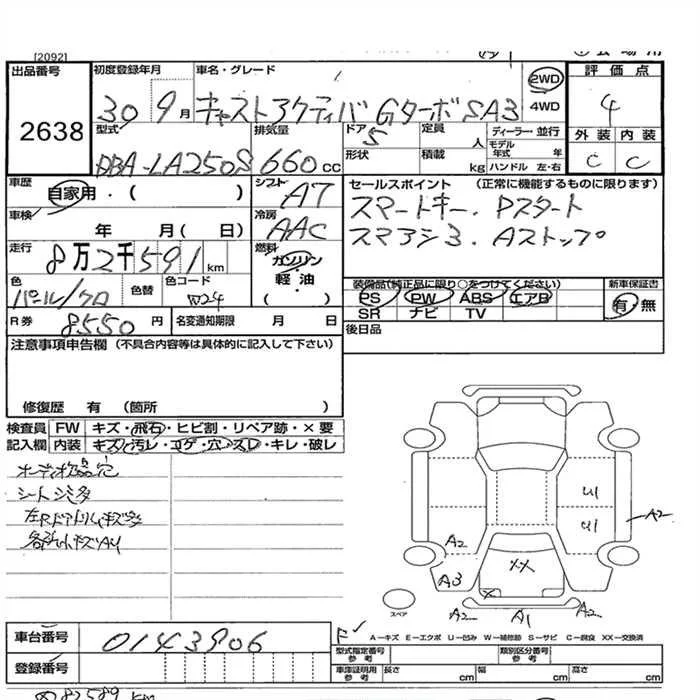 [2092]
出品番号 初度登録年月 車名・グレード 2WD 評価点
2638 30 9月 キャストアクティバ Gターボ SA3 4WD 4
型式 排気量 ドア 5 定員 人 ディーラー・並行 外装 内装
DBA-LA250S 660cc 形状 積載 kg モデル年式 年 ハンドル 左・右 C C
車歴 自家用・( ) シフト A7 セールスポイント (正常に機能するものに限ります)
車検 年 月( 日) 冷房 AAC スマートキー. Pスタート
走行 8万2千591km 燃料 ガソリン スマアシ3. Aストップ
色 パール/クロ 色替 色コード W24 軽油 ( ) 装備品(純正品に限り○をつけてください) 新車保証書
PS PW ABS エアB 有・無
R券 8550円 名変通知期限 月 日 SR ナビ TV
後日品
注意事項申告欄(不具合内容等は具体的に記入して下さい)
修復歴 有 (箇所 )
検査員 FW キズ・飛石・ヒビ割・リペア跡・×要
記入欄 内装 キズ・汚レ・コゲ・穴・スレ・キレ・破レ
シート
U1
U1
A2
A2
A3
XX
X
スペア
A2 A1 A2
車台番号 0143906 F
A-キズ E-エクボ U-凹み W-補修跡 S-サビ C-腐食 XX-交換済
型式指定番号 参考 類別区分番号 参考
登録番号 車庫証明用 参考 長さ cm 幅 cm 高さ cm
82589 km